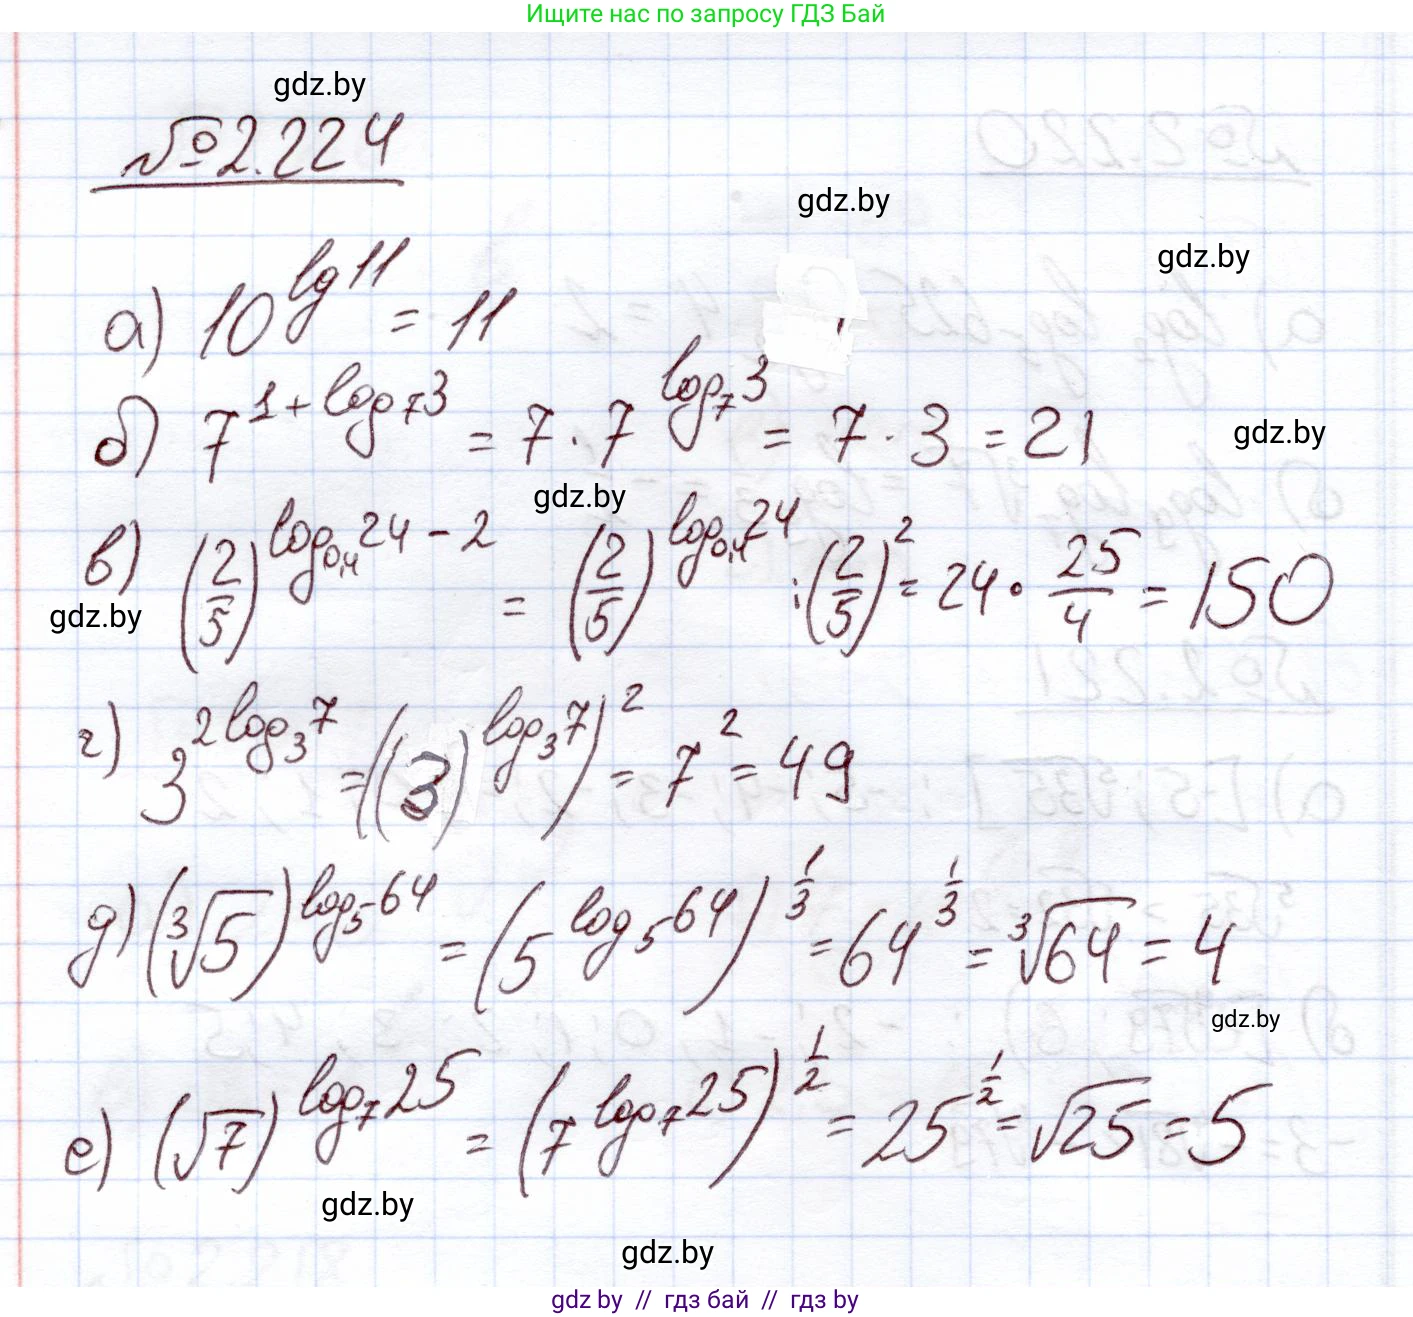 Ищите нас по запросу ГДЗ Бай
gdz.by
№2.224
gdz.by
gdz.by
а) 10^{lg 11} = 11
б) 7^{1+log_7 3} = 7 · 7^{log_7 3} = 7 · 3 = 21
gdz.by
gdz.by
в) (2/5)^{log_{0,4} 24 - 2} = (2/5)^{log_{0,4} 24} : (2/5)^2 = 24 · 25/4 = 150
gdz.by
г) 3^{2 log_3 7} = ((3)^{log_3 7})^2 = 7^2 = 49
д) (∛5)^{log_5 64} = (5^{log_5 64})^{1/3} = 64^{1/3} = ∛64 = 4
gdz.by
е) (√7)^{log_7 25} = (7^{log_7 25})^{1/2} = 25^{1/2} = √25 = 5
gdz.by
gdz.by
gdz by // гдз бай // гдз by